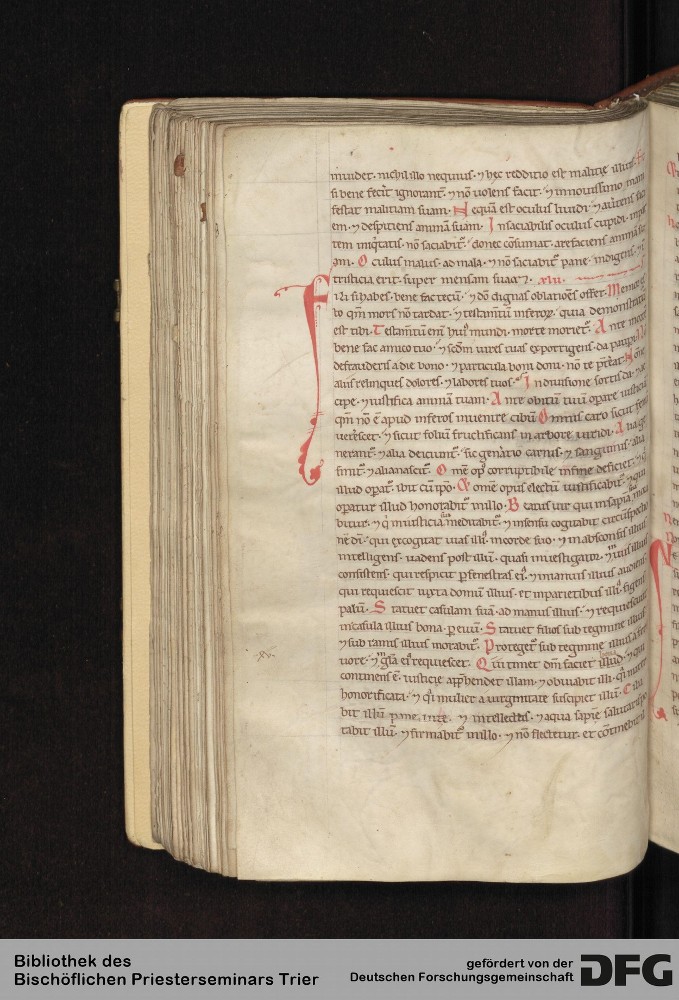 inuidet · nichil illo nequius · ⁊ hec redditio est malitie illius · Et
si bene fecerit ignorant̉ · ⁊ nō uolens facit · ⁊ in nouissimo mani
festat malitiam suam · Nequā est oculus liuidi · ⁊ auertens faci
em · ⁊ despiciens animā suam · Insaciabilis oculus cupidi · in par
tem iniq̇tatis · nō saciabit̉ · donec cōsumat · arefaciens animā su
am · Oculus malus · ad mala · ⁊ nō saciabit̉ pane · indigens · ⁊ ī
tristicia erit · super mensam suam · XIIII ·
Fili si habes · bene fac tecū · ⁊ dō dignas oblatiōes offer · Memor es
to qm̄ mors nō tardat · ⁊ testamtū inferoꝝ · quia demonstratū
est tibi · Testamtū em̄ hui᷒ mundi · morte moriet̉ · Ante morte
bene fac amico tuo · ⁊ scdm uires tuas exporrigens · da paupi · Nō
defrauderis a die bono · ⁊ particula boni doni · nō te pre̊eat · Nōne
aliis relinques dolores · ⁊ labores tuos · In diuisione sortis da · ⁊ ac
cipe · ⁊ iustifica animā tuam · Ante obitū tuū opare iusticiā
qm̄ nō ē apud inferos inuenire cibū · Omnis caro sicut fenū
ueterescet · ⁊ sicut foliū fructificans in arbore uiridi · Alia ge
nerant̉ · ⁊ alia deiciunt̉ · sic gen̄atio carnis · ⁊ sanguinis · alia
finit̉ · ⁊ alia nascit̉ · Om̄e op᷒ corruptibile in fine deficiet · ⁊ q̇
illud opat̉ · ibit cū ip̄o · Et om̄e opus electū iustificabit̉ · ⁊ qui
opatur illud honorabit̉ in illo · Beatus uir qui in sapiā mora
bitur · ⁊ q̇ in iusticia sua meditabit̉ · ⁊ in sensu cogitabit circūspectio
nē dī · qui excogitat uias illi᷒ · in corde suo · ⁊ in absconsis illius
intelligens · uadens post illū · quasi inuestigator · ⁊ in uiis illius
consistens · qui respicit p fenestras ei᷒ · ⁊ in ianuis illius audiens
qui requiescit iuxta domū illius · et in parietibus illi᷒ figens
palū · Statuet casulam suā · ad manus illius · ⁊ requiescunt
in casula illius bona · p euū · Statuet filios sub tegmine illius
⁊ sub ramis illius morabit̉ · Proteget̉ sub tegmine illius a fer
uore · ⁊ in gl̄a ei᷒ requiescet · Qui timet dm̄ faciet illud · ⁊ qui
continens ē · iusticie app̄hendet illam · ⁊ obuiabit illi · q̇i mater
honorificata · ⁊ q̇i mulier a uirginitate suscipiet illū · Ciba
bit illū pane uite · ⁊ intellectus · ⁊ aqua sapiē salutaris po
tabit illū · ⁊ firmabit̉ in illo · ⁊ nō flectetur · et cōtinebit il
·xv·
Bibliothek des
Bischöflichen Priesterseminars Trier
gefördert von der
Deutschen Forschungsgemeinschaft
DFG